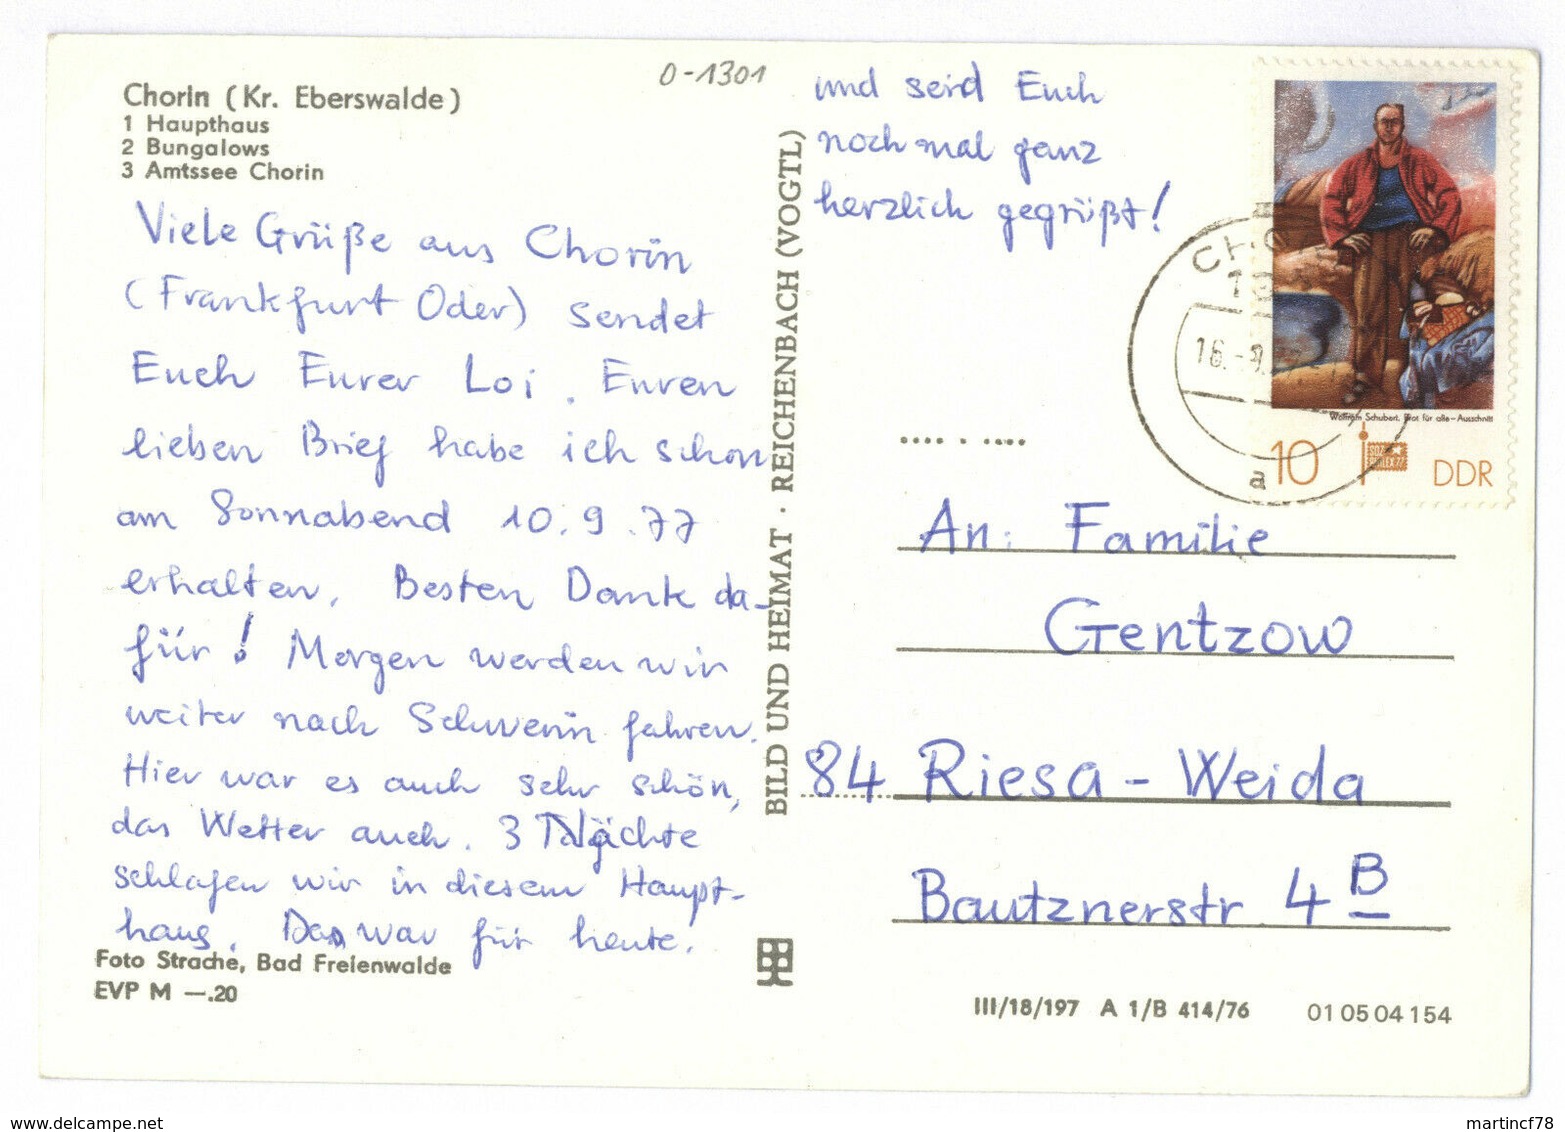 O-1301
Chorin (Kr. Eberswalde)
1 Haupthaus
2 Bungalows
3 Amtssee Chorin
Viele Grüße aus Chorin
(Frankfurt Oder) sendet
Euch Eurer Loi. Euren
lieben Brief habe ich schon
am Sonnabend 10.9.77
erhalten. Besten Dank da-
für! Morgen werden wir
weiter nach Schwerin fahren.
Hier war es auch sehr schön,
das Wetter auch. 3 Nächte
schlafen wir in diesem Haupt-
haus. Das war für heute.
Foto Strache, Bad Freienwalde
EVP M —.20
BILD UND HEIMAT · REICHENBACH (VOGTL)
und seid Euch
noch mal ganz
herzlich gegrüßt!
CHO
16.-9.
a
Wolfram Schubert, Brot für alle - Ausschnitt
10 DDR
An: Familie
Gentzow
84 Riesa - Weida
Bautznerstr. 4 B
III/18/197 A 1/B 414/76 01 05 04 154
martincf78